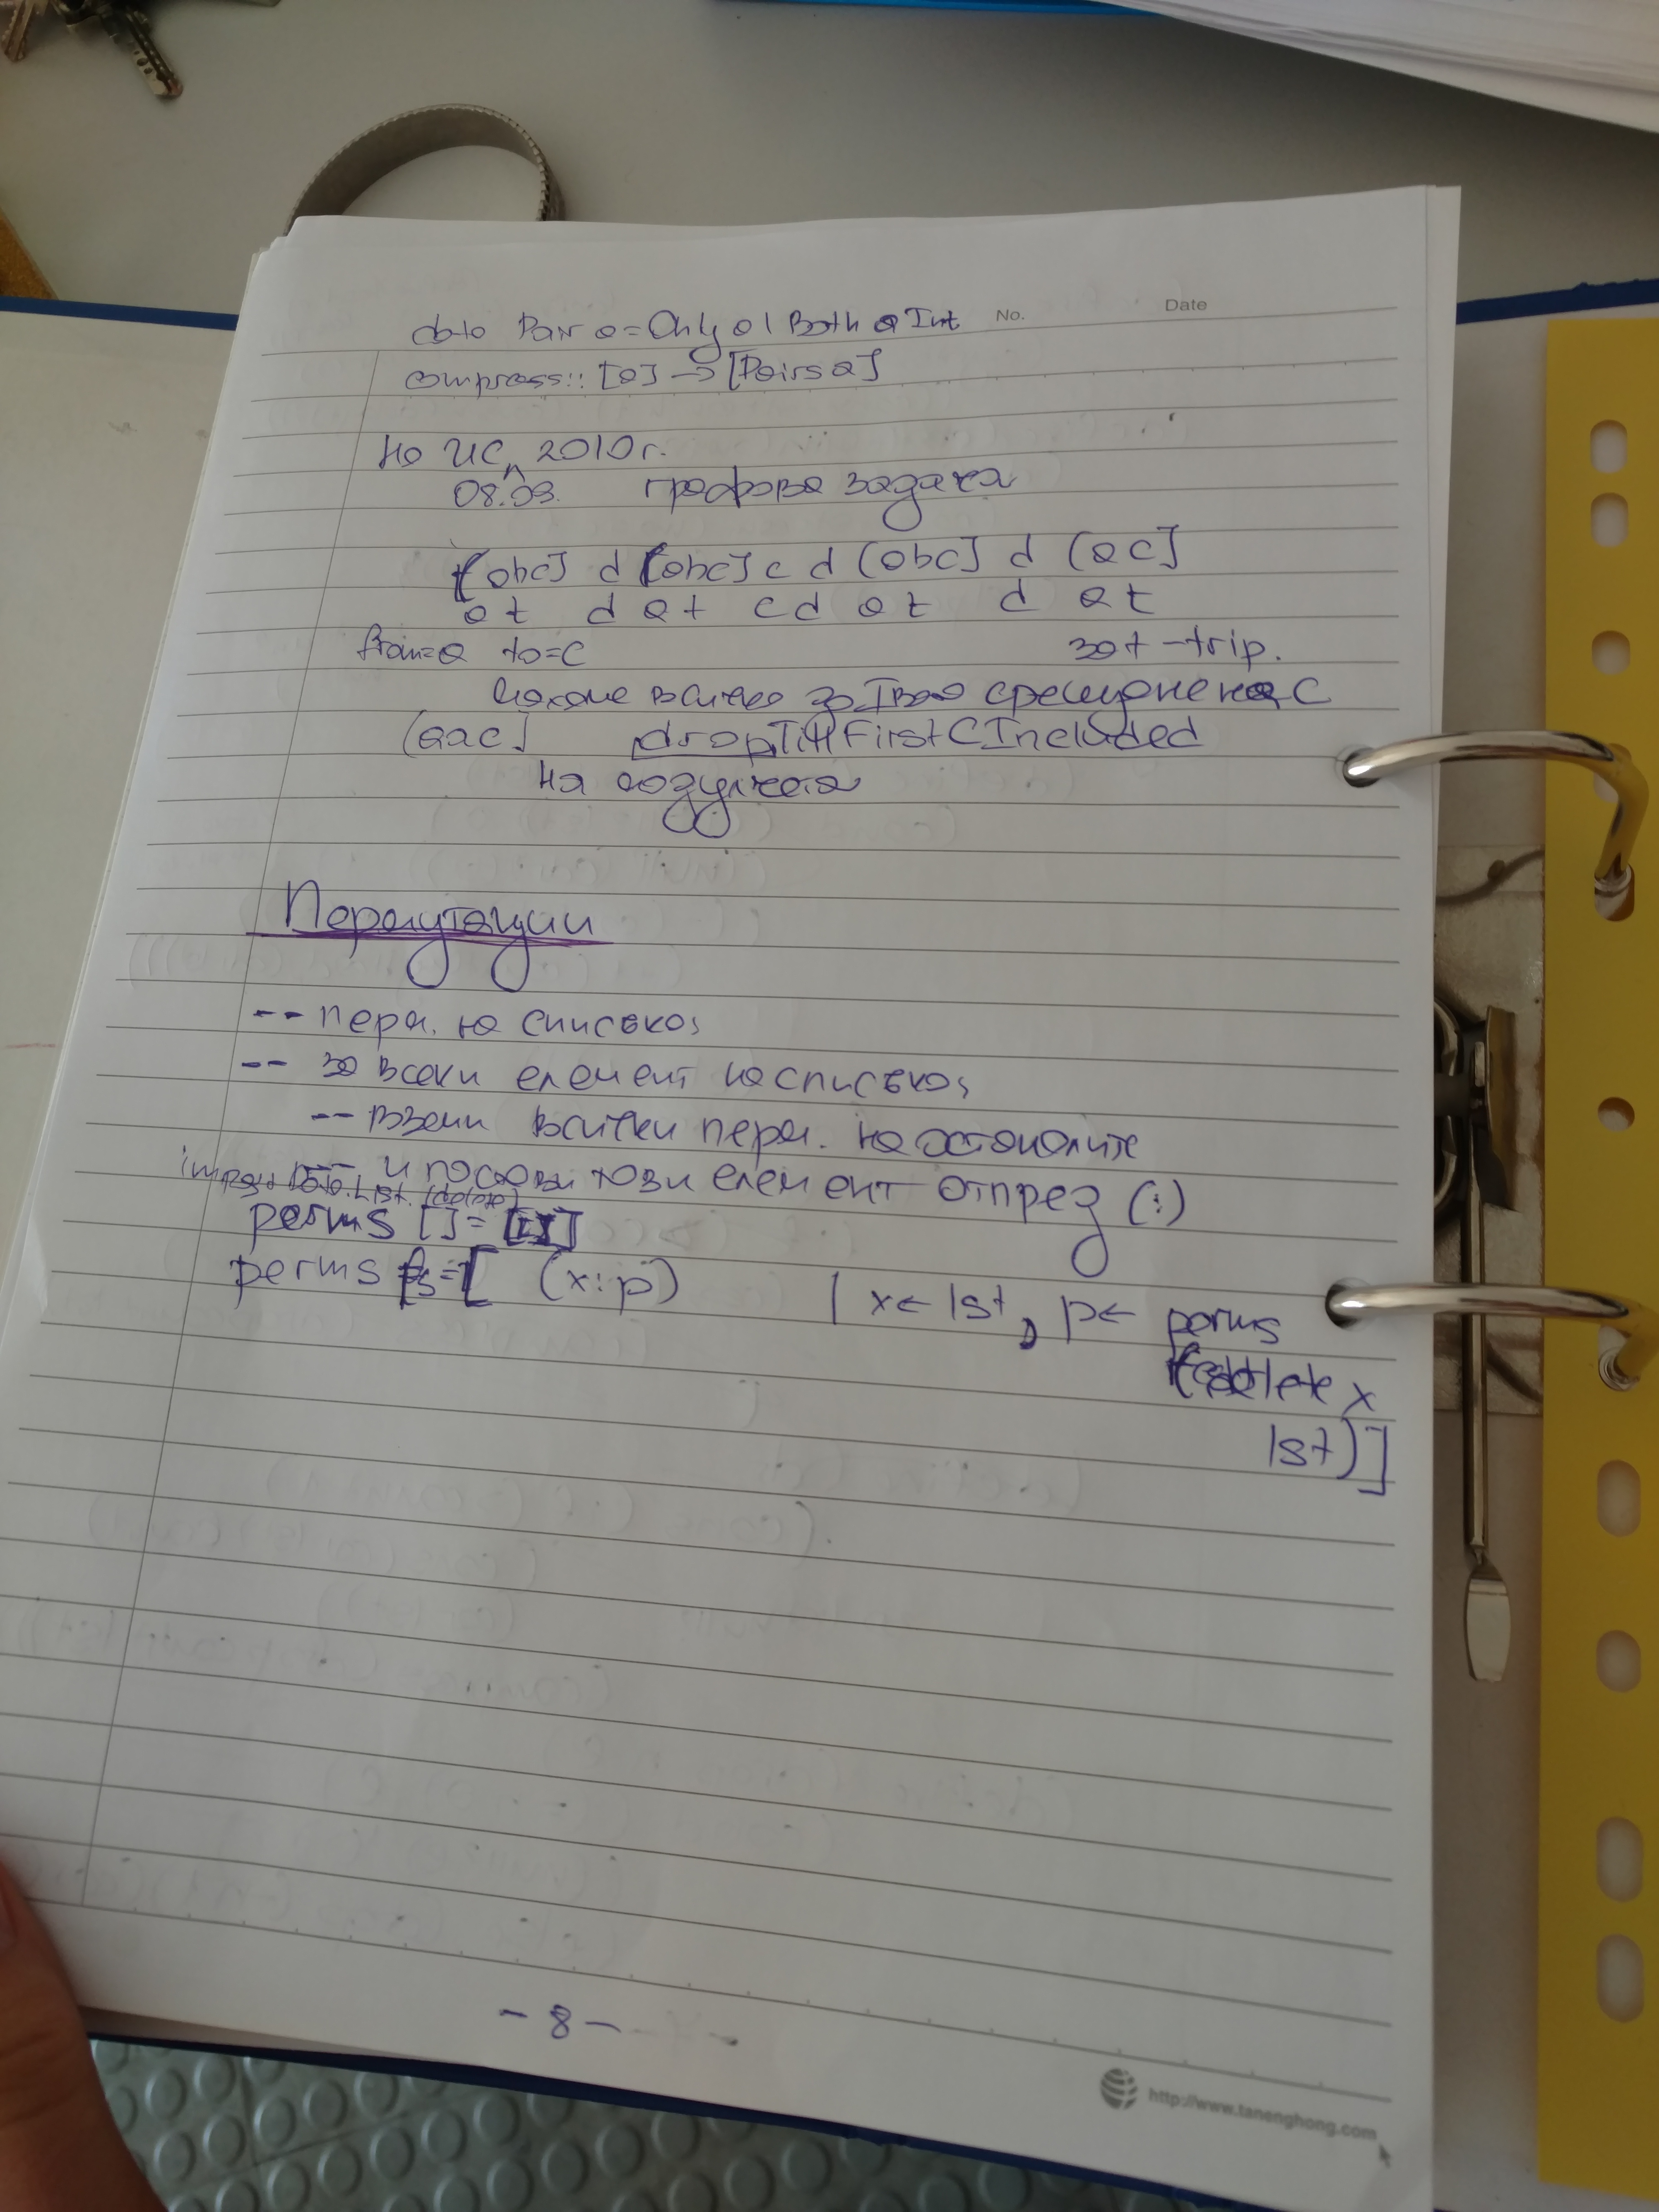 No. Date
data Pair a = Only a | Both a Int
compress :: [a] -> [Pairs a]
На ИС 2010г.
08.09. графова задача
[abc] d [abc] c d [abc] d [ac]
at d at c d at d at
from=a to=c за t - trip.
всичко за I-во срещане на c
[aac] dropTillFirstCIncluded
на
Пермутации
-- перм. на списъка;
-- за всеки елемент на списъка;
-- вземи всички перм. на останалите
-- и постави този елемент отпред (:)
import Data.List (delete)
perms [] = [[]]
perms = [ (x:p) | x <- lst, p <- perms
(delete x
lst)]
- 8 -
http://www.tanenghong.com